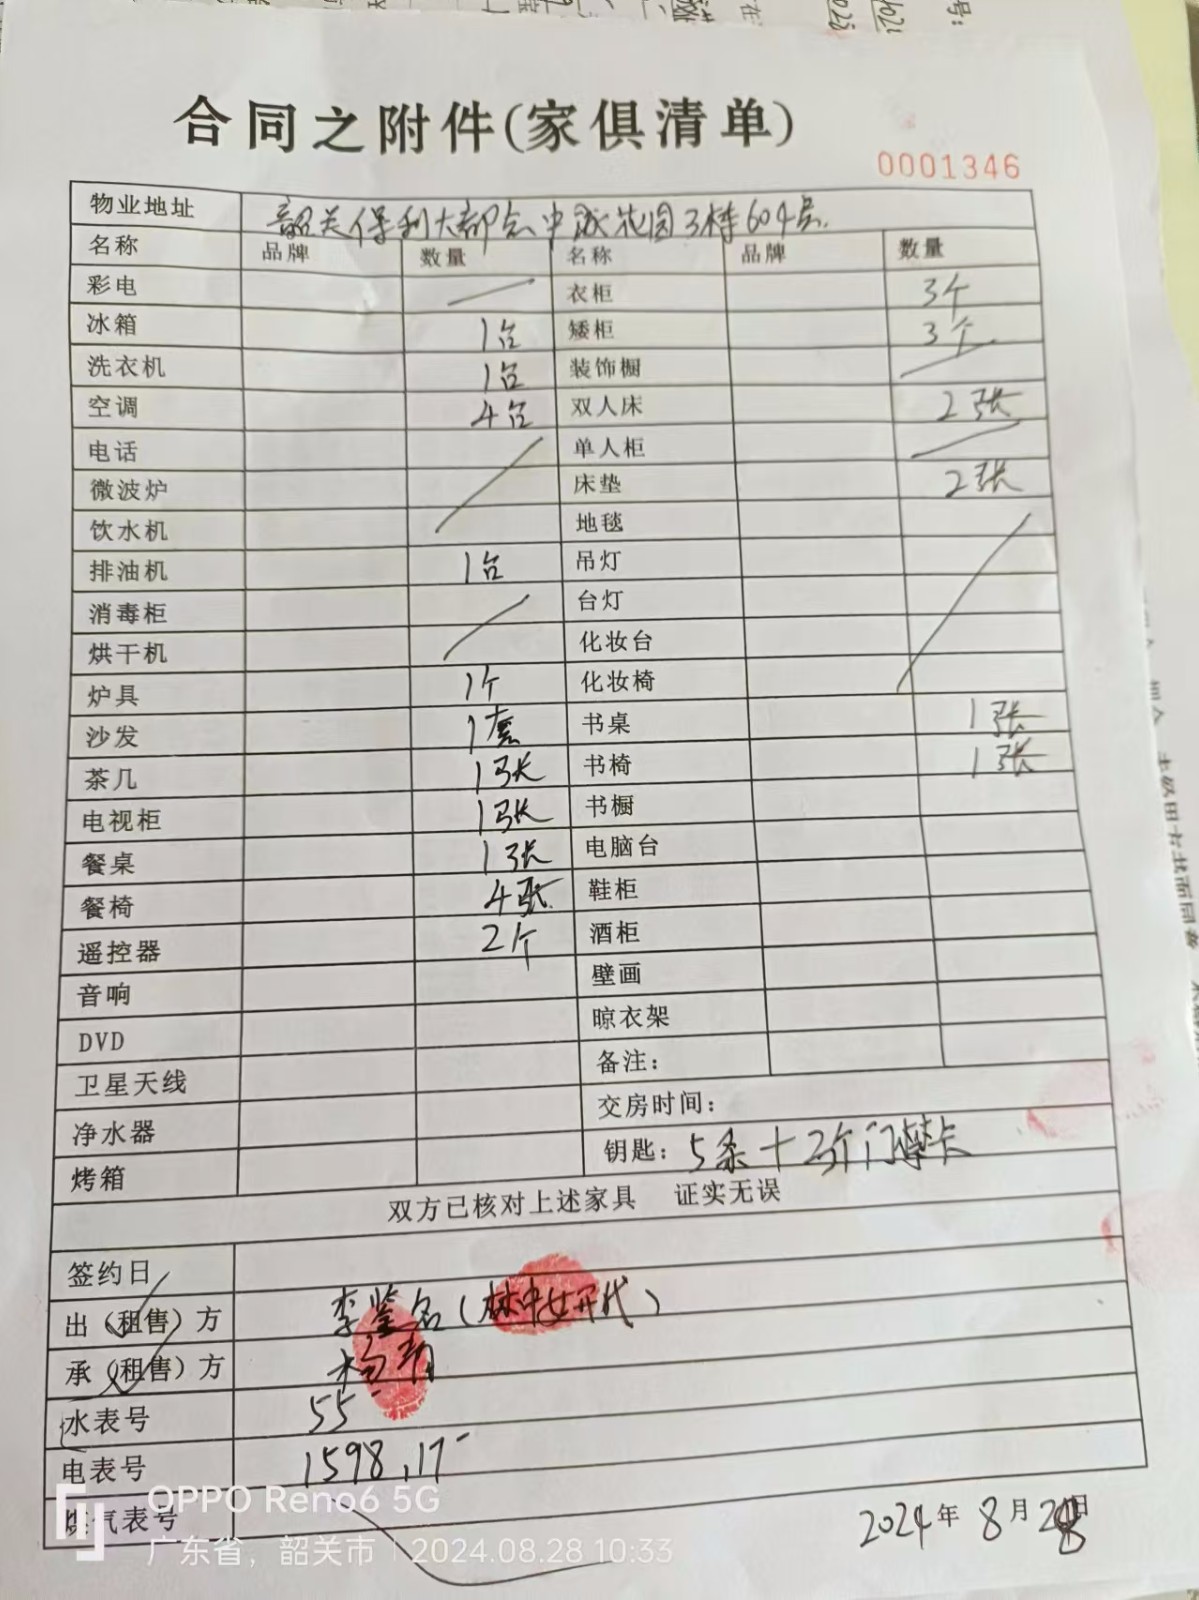 合同之附件(家俱清单)
0001346
物业地址 韶关保利大都会中诚花园3栋604房.
名称 品牌 数量 名称 品牌 数量
彩电 衣柜 3个
冰箱 1台 矮柜 3个
洗衣机 1台 装饰橱
空调 4台 双人床 2张
电话 单人柜
微波炉 床垫 2张
饮水机 地毯
排油机 1台 吊灯
消毒柜 台灯
烘干机 化妆台
炉具 1个 化妆椅
沙发 1套 书桌 1张
茶几 1张 书椅 1张
电视柜 1张 书橱
餐桌 1张 电脑台
餐椅 4张 鞋柜
遥控器 2个 酒柜
音响 壁画
DVD 晾衣架
卫星天线 备注:
净水器 交房时间:
烤箱 钥匙: 5条+2个门禁卡
双方已核对上述家具 证实无误
签约日
出(租售)方 李鉴名(林中女开代)
承(租售)方 杨青
水表号 55
电表号 1598.17
煤气表号
2024年8月28日
OPPO Reno6 5G
广东省，韶关市 2024.08.28 10:33